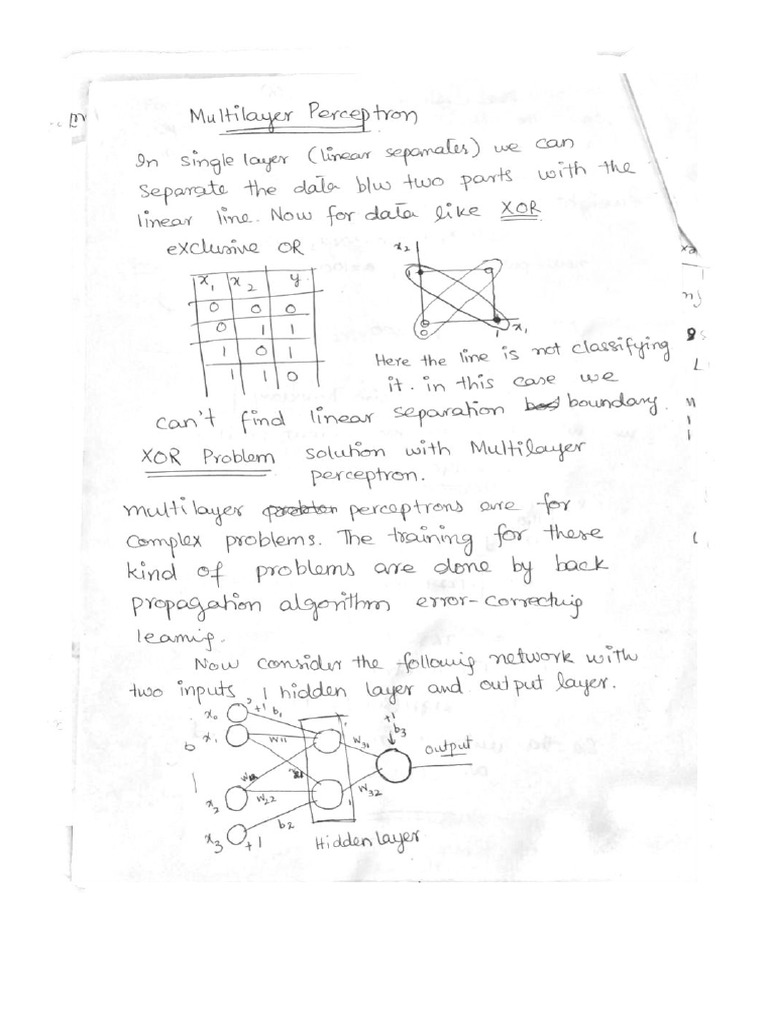 Multilayer Perceptron
In single layer (linear separates) we can
separate the data b/w two parts with the
linear line. Now for data like XOR
exclusive OR
x1 x2 y
0 0 0
0 1 1
1 0 1
1 1 0
x2
1
0
1 x1
Here the line is not classifying
it. in this case we
can't find linear separation boundary.
XOR Problem solution with Multilayer
perceptron.
multilayer perceptrons are for
complex problems. The training for these
kind of problems are done by back
propagation algorithm error-correcting
learning.
Now consider the following network with
two inputs, 1 hidden layer and output layer.
x0 +1 b1
x1 w11 w31
+1
b3
output
x2 w22 w32
x3 +1 b2
Hidden layer